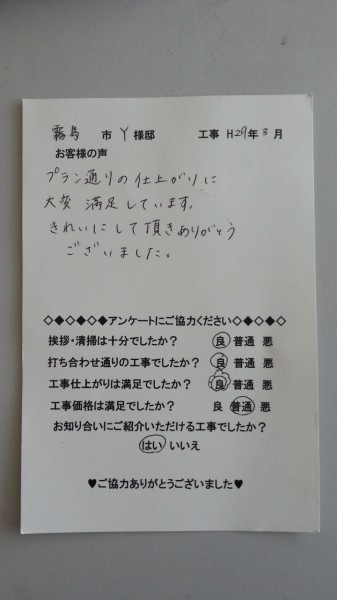 霧島 市 Y 様邸 工事 H29年3月
お客様の声
プラン通りの仕上がりに
大変 満足しています。
きれいにして頂きありがとう
ございました。
◇◆◇◆◇◆アンケートにご協力ください◆◇◆◇◆◇
挨拶・清掃は十分でしたか? 良 普通 悪
打ち合わせ通りの工事でしたか? 良 普通 悪
工事仕上がりは満足でしたか? 良 普通 悪
工事価格は満足でしたか? 良 普通 悪
お知り合いにご紹介いただける工事でしたか?
はい いいえ
♥ご協力ありがとうございました♥